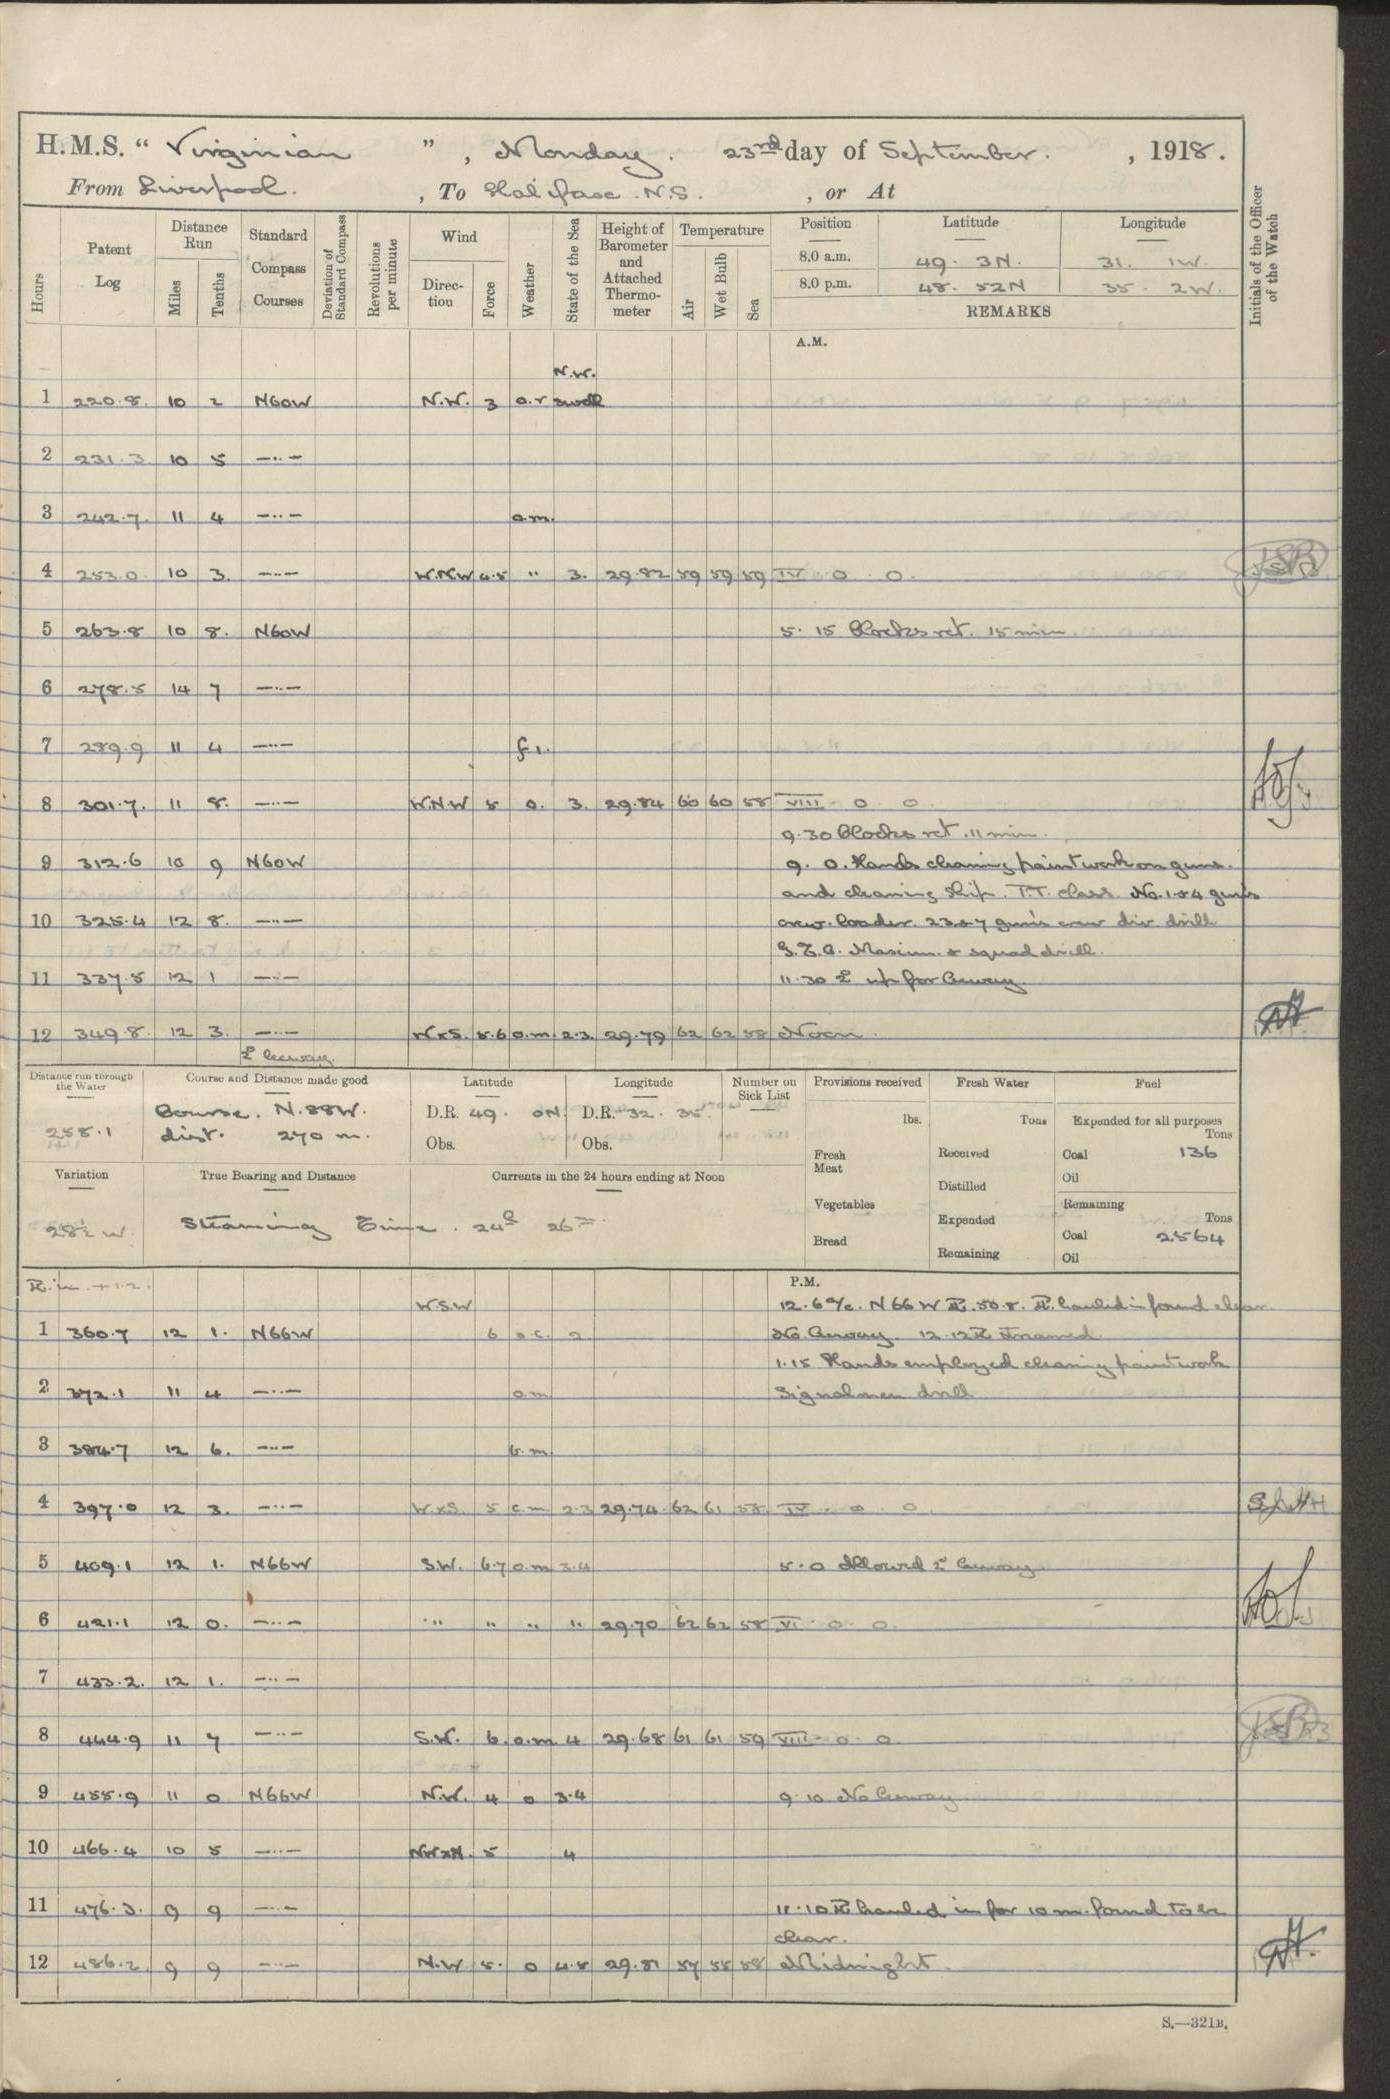 H.M.S. “ Virginian ” , Monday. 23rd day of September. , 1918.
From Liverpool. , To Halifax. N.S. , or At
Hours
Patent Log
Distance Run
Miles
Tenths
Standard Compass Courses
Deviation of Standard Compass
Revolutions per minute
Wind
Direction
Force
Weather
State of the Sea
Height of Barometer and Attached Thermometer
Temperature
Air
Wet Bulb
Sea
Position Latitude Longitude
8.0 a.m. 49. 3N. 31. 1W.
8.0 p.m. 48. 52N 35. 2W.
REMARKS
Initials of the Officer of the Watch
A.M.
N.W.
1 220.8. 10 2 N60W N.W. 3 o.r swell
2 231.3 10 5 —··—
3 242.7. 11 4 —··— o.m.
4 253.0 10 3. —··— W.N.W 4.5 " 3. 29.82 59 59 59 IV 0 0.
5 263.8 10 8. N60W 5.15 Clocks ret. 15 min
6 278.5 14 7 —··—
7 289.9 11 4 —··—
8 301.7. 11 8. —··— W.N.W 5 o. 3. 29.84 60 60 58 VIII 0 0
9.30 Clocks ret. 11 min.
9 312.6 10 9 N60W 9. 0. Hands cleaning paintwork on guns.
and cleaning ship. T.T. class. No. 1 & 4 gun's
10 325.4 12 8. —··— crew. loader. 2 3 & 7 gun's crew div. drill
Maxim. & squad drill.
11 337.5 12 1 —··— 11.30 up for
12 349.8. 12 3. —··— WxS. 5.6 o.m. 2.3. 29.79 62 62 58 Noon.
Distance run through the Water
258.1
Course and Distance made good
Course. N.88W.
dist. 270 m.
Latitude
D.R. 49. 0N.
Obs.
Longitude
D.R. 32. 35.
Obs.
Number on Sick List
Provisions received
lbs.
Fresh Meat
Vegetables
Bread
Fresh Water
Tons
Received
Distilled
Expended
Remaining
Fuel
Expended for all purposes
Tons
Coal 136
Oil
Remaining
Tons
Coal 2564
Oil
Variation
28½ W
True Bearing and Distance
Currents in the 24 hours ending at Noon
Steaming Time. 24h 26m
P.M.
W.S.W 12.6 a/c. N66W P.L. 50.8. P.L. hauled in found clear
1 360.7 12 1. N66W 6 o.c. 2 No 12.12 P.L. streamed.
1.15 Hands employed cleaning paintwork
2 372.1 11 4 —··— o.m Signalmen drill
3 384.7 12 6. —··— b.m.
4 397.0 12 3. —··— WxS. 5 c.m 2.3 29.74 62 61 58. IV. 0 0.
5 409.1 12 1. N66W S.W. 6.7 o.m 3.4 5.0 Allowed
6 421.1 12 0. —··— " " " " 29.70 62 62 58 VI 0. 0.
7 433.2. 12 1. —··—
8 444.9 11 7 —··— S.W. 6. o.m 4 29.68 61 61 59 VIII 0 0
9 455.9 11 0 N66W N.W. 4 o 3.4 9.10 No
10 466.4 10 5 —··— NWxN. 5 4
11 476.3. 9 9 —··— 11.10 P.L. hauled in for 10 m. found to be
clear.
12 486.2 9 9 —··— N.W 5. o 4.5 29.81 57 55 58 Midnight.
S.—321B.